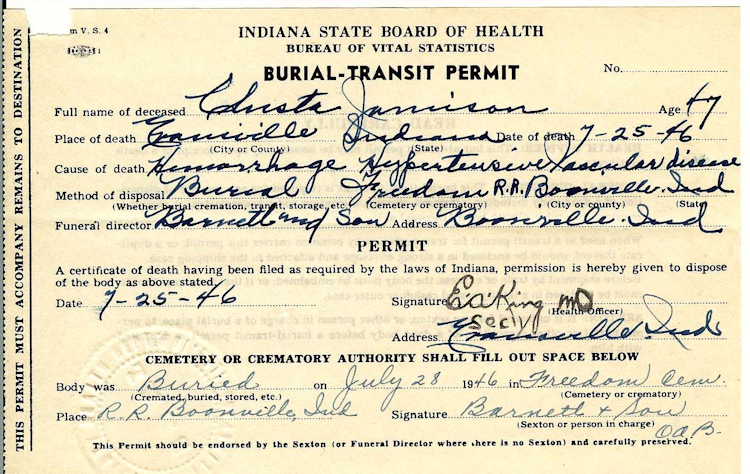 m V. S. 4
INDIANA STATE BOARD OF HEALTH
BUREAU OF VITAL STATISTICS
BURIAL-TRANSIT PERMIT
No.
Full name of deceased Christa Jamison Age 47
Place of death Evansville Indiana Date of death 7-25-46
(City or County) (State)
Cause of death Hemorrhage Hypertensive Vascular disease
Method of disposal Burial Freedom R.R. Boonville Ind
(Whether burial cremation, transit, storage, etc.) (Cemetery or crematory) (City or county) (State)
Funeral director Barnett and Son Address Boonville Ind
PERMIT
A certificate of death having been filed as required by the laws of Indiana, permission is hereby given to dispose
of the body as above stated.
Date 7-25-46 Signature E.A. King MD
(Health Officer)
Address Evansville Ind
CEMETERY OR CREMATORY AUTHORITY SHALL FILL OUT SPACE BELOW
Body was Buried on July 28 1946 in Freedom Cem.
(Cremated, buried, stored, etc.) (Cemetery or crematory)
Place R.R. Boonville, Ind Signature Barnett & Son
(Sexton or person in charge)
O.A.B.
This Permit should be endorsed by the Sexton (or Funeral Director where there is no Sexton) and carefully preserved.
THIS PERMIT MUST ACCOMPANY REMAINS TO DESTINATION